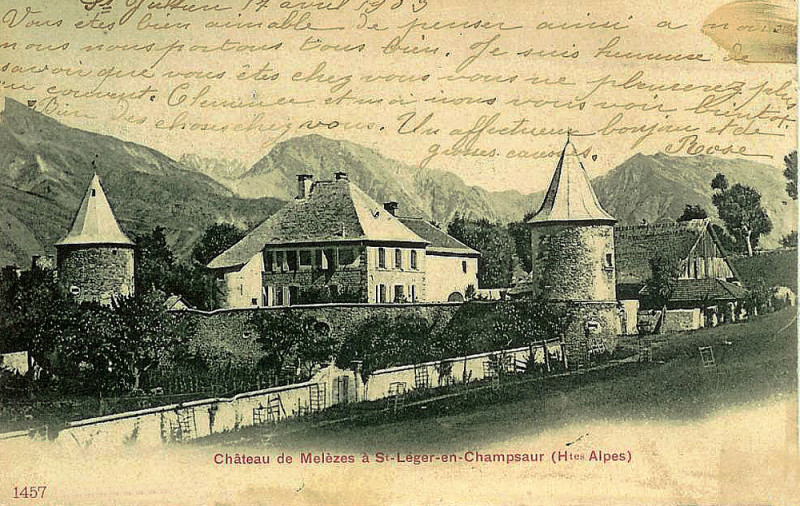 St Julien 17 avril 1903
Vous êtes bien aimable de penser ainsi a
nous nous portons tous bien. Je suis heureuse de
savoir que vous êtes chez vous vous ne pleurerez plus
au couvent. Clemence et moi nous vous voir bientot
bien des choses chez vous. Un affectueux bonjour et de
grosses caresses. Rose
Château de Melèzes à St-Léger-en-Champsaur (Htes Alpes)
1457